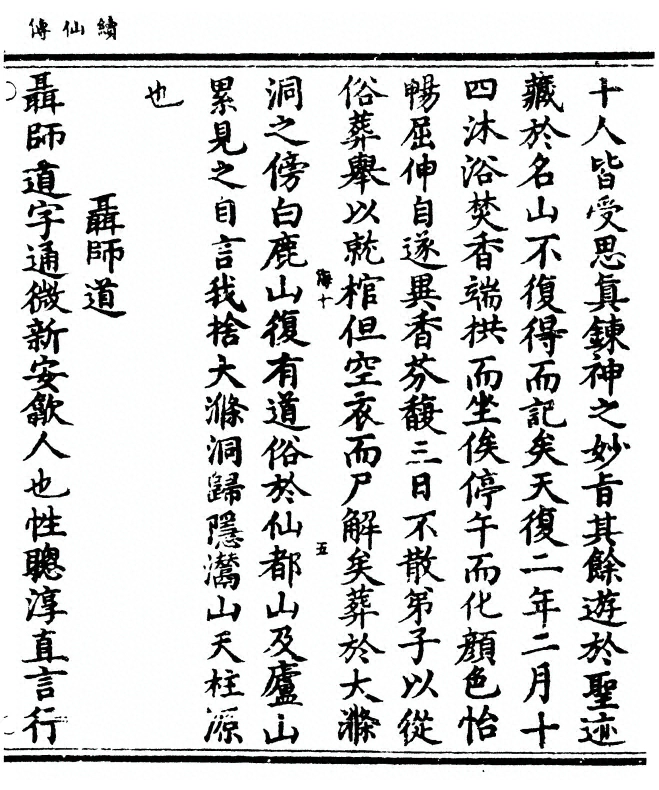 續仙傳
十人皆受思真鍊神之妙旨其餘遊於聖迹
藏於名山不復得而記矣天復二年二月十
四沐浴焚香端拱而坐俟停午而化顔色怡
暢屈伸自遂異香芬馥三日不散弟子以從
俗葬舉以就棺但空衣而尸解矣葬於大滌
海十
五
洞之傍白鹿山復有道俗於仙都山及廬山
累見之自言我捨大滌洞歸隱灊山天柱源
也
聶師道
聶師道字通微新安歙人也性聰淳直言行